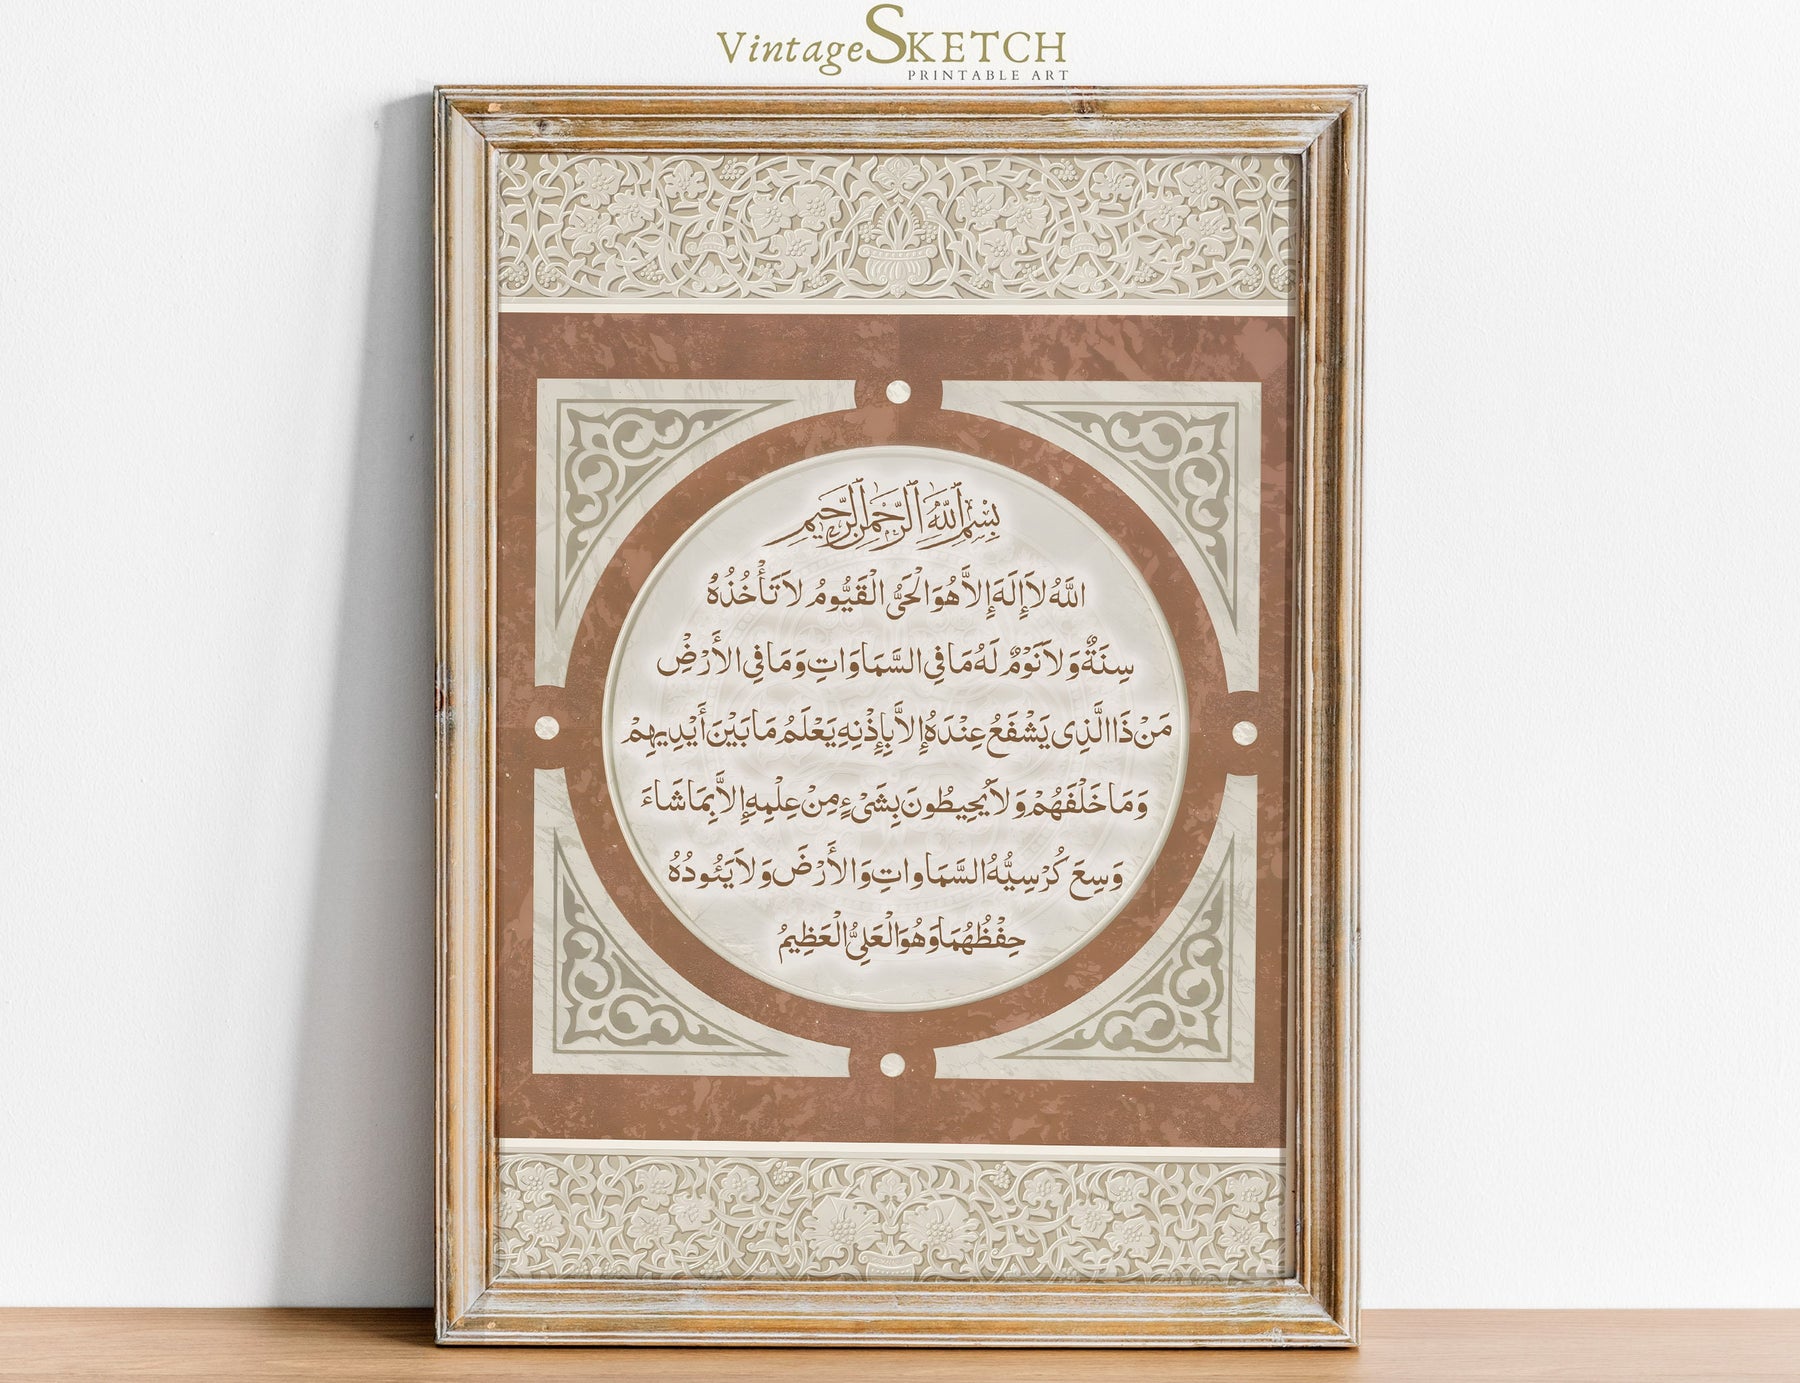 VintageSKETCH
PRINTABLE ART
بِسْمِ ٱللَّهِ ٱلرَّحْمَٰنِ ٱلرَّحِيمِ
اللَّهُ لَا إِلَهَ إِلاَّ هُوَ الْحَيُّ الْقَيُّومُ لاَ تَأْخُذُهُ
سِنَةٌ وَلاَ نَوْمٌ لَهُ مَا فِي السَّمَاوَاتِ وَمَا فِي الأَرْضِ
مَنْ ذَا الَّذِي يَشْفَعُ عِنْدَهُ إِلاَّ بِإِذْنِهِ يَعْلَمُ مَا بَيْنَ أَيْدِيهِمْ
وَمَا خَلْفَهُمْ وَلاَ يُحِيطُونَ بِشَيْءٍ مِنْ عِلْمِهِ إِلاَّ بِمَا شَاءَ
وَسِعَ كُرْسِيُّهُ السَّمَاواتِ وَالأَرْضَ وَلاَ يَئُودُهُ
حِفْظُهُمَا وَهُوَ الْعَلِيُّ الْعَظِيمُ